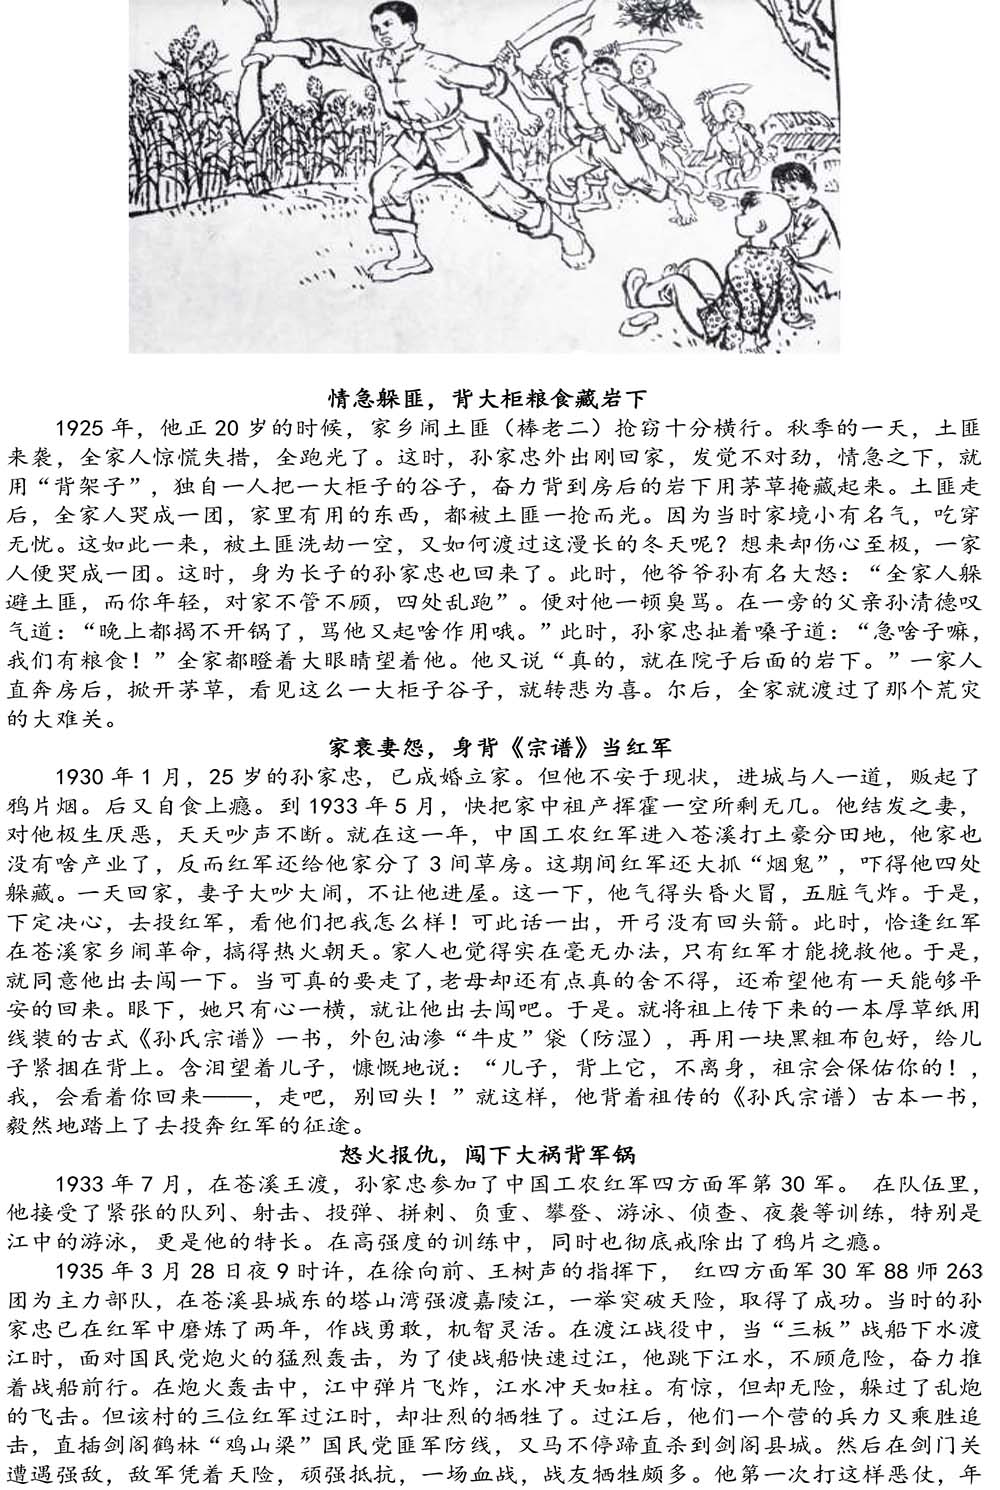 情急躲匪，背大柜粮食藏岩下
1925 年，他正 20 岁的时候，家乡闹土匪（棒老二）抢窃十分横行。秋季的一天，土匪
来袭，全家人惊慌失措，全跑光了。这时，孙家忠外出刚回家，发觉不对劲，情急之下，就
用“背架子”，独自一人把一大柜子的谷子，奋力背到房后的岩下用茅草掩藏起来。土匪走
后，全家人哭成一团，家里有用的东西，都被土匪一抢而光。因为当时家境小有名气，吃穿
无忧。这如此一来，被土匪洗劫一空，又如何渡过这漫长的冬天呢？想来却伤心至极，一家
人便哭成一团。这时，身为长子的孙家忠也回来了。此时，他爷爷孙有名大怒：“全家人躲
避土匪，而你年轻，对家不管不顾，四处乱跑”。便对他一顿臭骂。在一旁的父亲孙清德叹
气道：“晚上都揭不开锅了，骂他又起啥作用哦。”此时，孙家忠扯着嗓子道：“急啥子嘛，
我们有粮食！”全家都瞪着大眼睛望着他。他又说“真的，就在院子后面的岩下。”一家人
直奔房后，掀开茅草，看见这么一大柜子谷子，就转悲为喜。尔后，全家就渡过了那个荒灾
的大难关。
家衰妻怨，身背《宗谱》当红军
1930 年 1 月，25 岁的孙家忠，已成婚立家。但他不安于现状，进城与人一道，贩起了
鸦片烟。后又自食上瘾。到 1933 年 5 月，快把家中祖产挥霍一空所剩无几。他结发之妻，
对他极生厌恶，天天吵声不断。就在这一年，中国工农红军进入苍溪打土豪分田地，他家也
没有啥产业了，反而红军还给他家分了 3 间草房。这期间红军还大抓“烟鬼”，吓得他四处
躲藏。一天回家，妻子大吵大闹，不让他进屋。这一下，他气得头昏火冒，五脏气炸。于是，
下定决心，去投红军，看他们把我怎么样！可此话一出，开弓没有回头箭。此时，恰逢红军
在苍溪家乡闹革命，搞得热火朝天。家人也觉得实在毫无办法，只有红军才能挽救他。于是，
就同意他出去闯一下。当可真的要走了，老母却还有点真的舍不得，还希望他有一天能够平
安的回来。眼下，她只有心一横，就让他出去闯吧。于是。就将祖上传下来的一本厚草纸用
线装的古式《孙氏宗谱》一书，外包油渗“牛皮”袋（防湿），再用一块黑粗布包好，给儿
子紧捆在背上。含泪望着儿子，慷慨地说：“儿子，背上它，不离身，祖宗会保佑你的！，
我，会看着你回来——，走吧，别回头！”就这样，他背着祖传的《孙氏宗谱）古本一书，
毅然地踏上了去投奔红军的征途。
怒火报仇，闯下大祸背军锅
1933 年 7 月，在苍溪王渡，孙家忠参加了中国工农红军四方面军第 30 军。 在队伍里，
他接受了紧张的队列、射击、投弹、拼刺、负重、攀登、游泳、侦查、夜袭等训练，特别是
江中的游泳，更是他的特长。在高强度的训练中，同时也彻底戒除出了鸦片之瘾。
1935 年 3 月 28 日夜 9 时许，在徐向前、王树声的指挥下， 红四方面军 30 军 88 师 263
团为主力部队，在苍溪县城东的塔山湾强渡嘉陵江，一举突破天险，取得了成功。当时的孙
家忠已在红军中磨炼了两年，作战勇敢，机智灵活。在渡江战役中，当“三板”战船下水渡
江时，面对国民党炮火的猛烈轰击，为了使战船快速过江，他跳下江水，不顾危险，奋力推
着战船前行。在炮火轰击中，江中弹片飞炸，江水冲天如柱。有惊，但却无险，躲过了乱炮
的飞击。但该村的三位红军过江时，却壮烈的牺牲了。过江后，他们一个营的兵力又乘胜追
击，直插剑阁鹤林“鸡山梁”国民党匪军防线，又马不停蹄直杀到剑阁县城。然后在剑门关
遭遇强敌，敌军凭着天险，顽强抵抗，一场血战，战友牺牲颇多。他第一次打这样恶仗，年